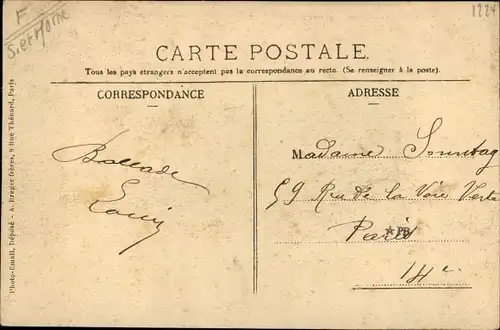 F
S. et Marne
1224
CARTE POSTALE.
Tous les pays étrangers n'acceptent pas la correspondance au recto. (Se renseigner à la poste).
CORRESPONDANCE
ADRESSE
Ballade
Louis
Madame Sonntag
59 Rue de la Voie Verte
Paris
★PB
14e
Photo-Email, Déposé - A. Breger frères, 9 Rue Thénard, Paris